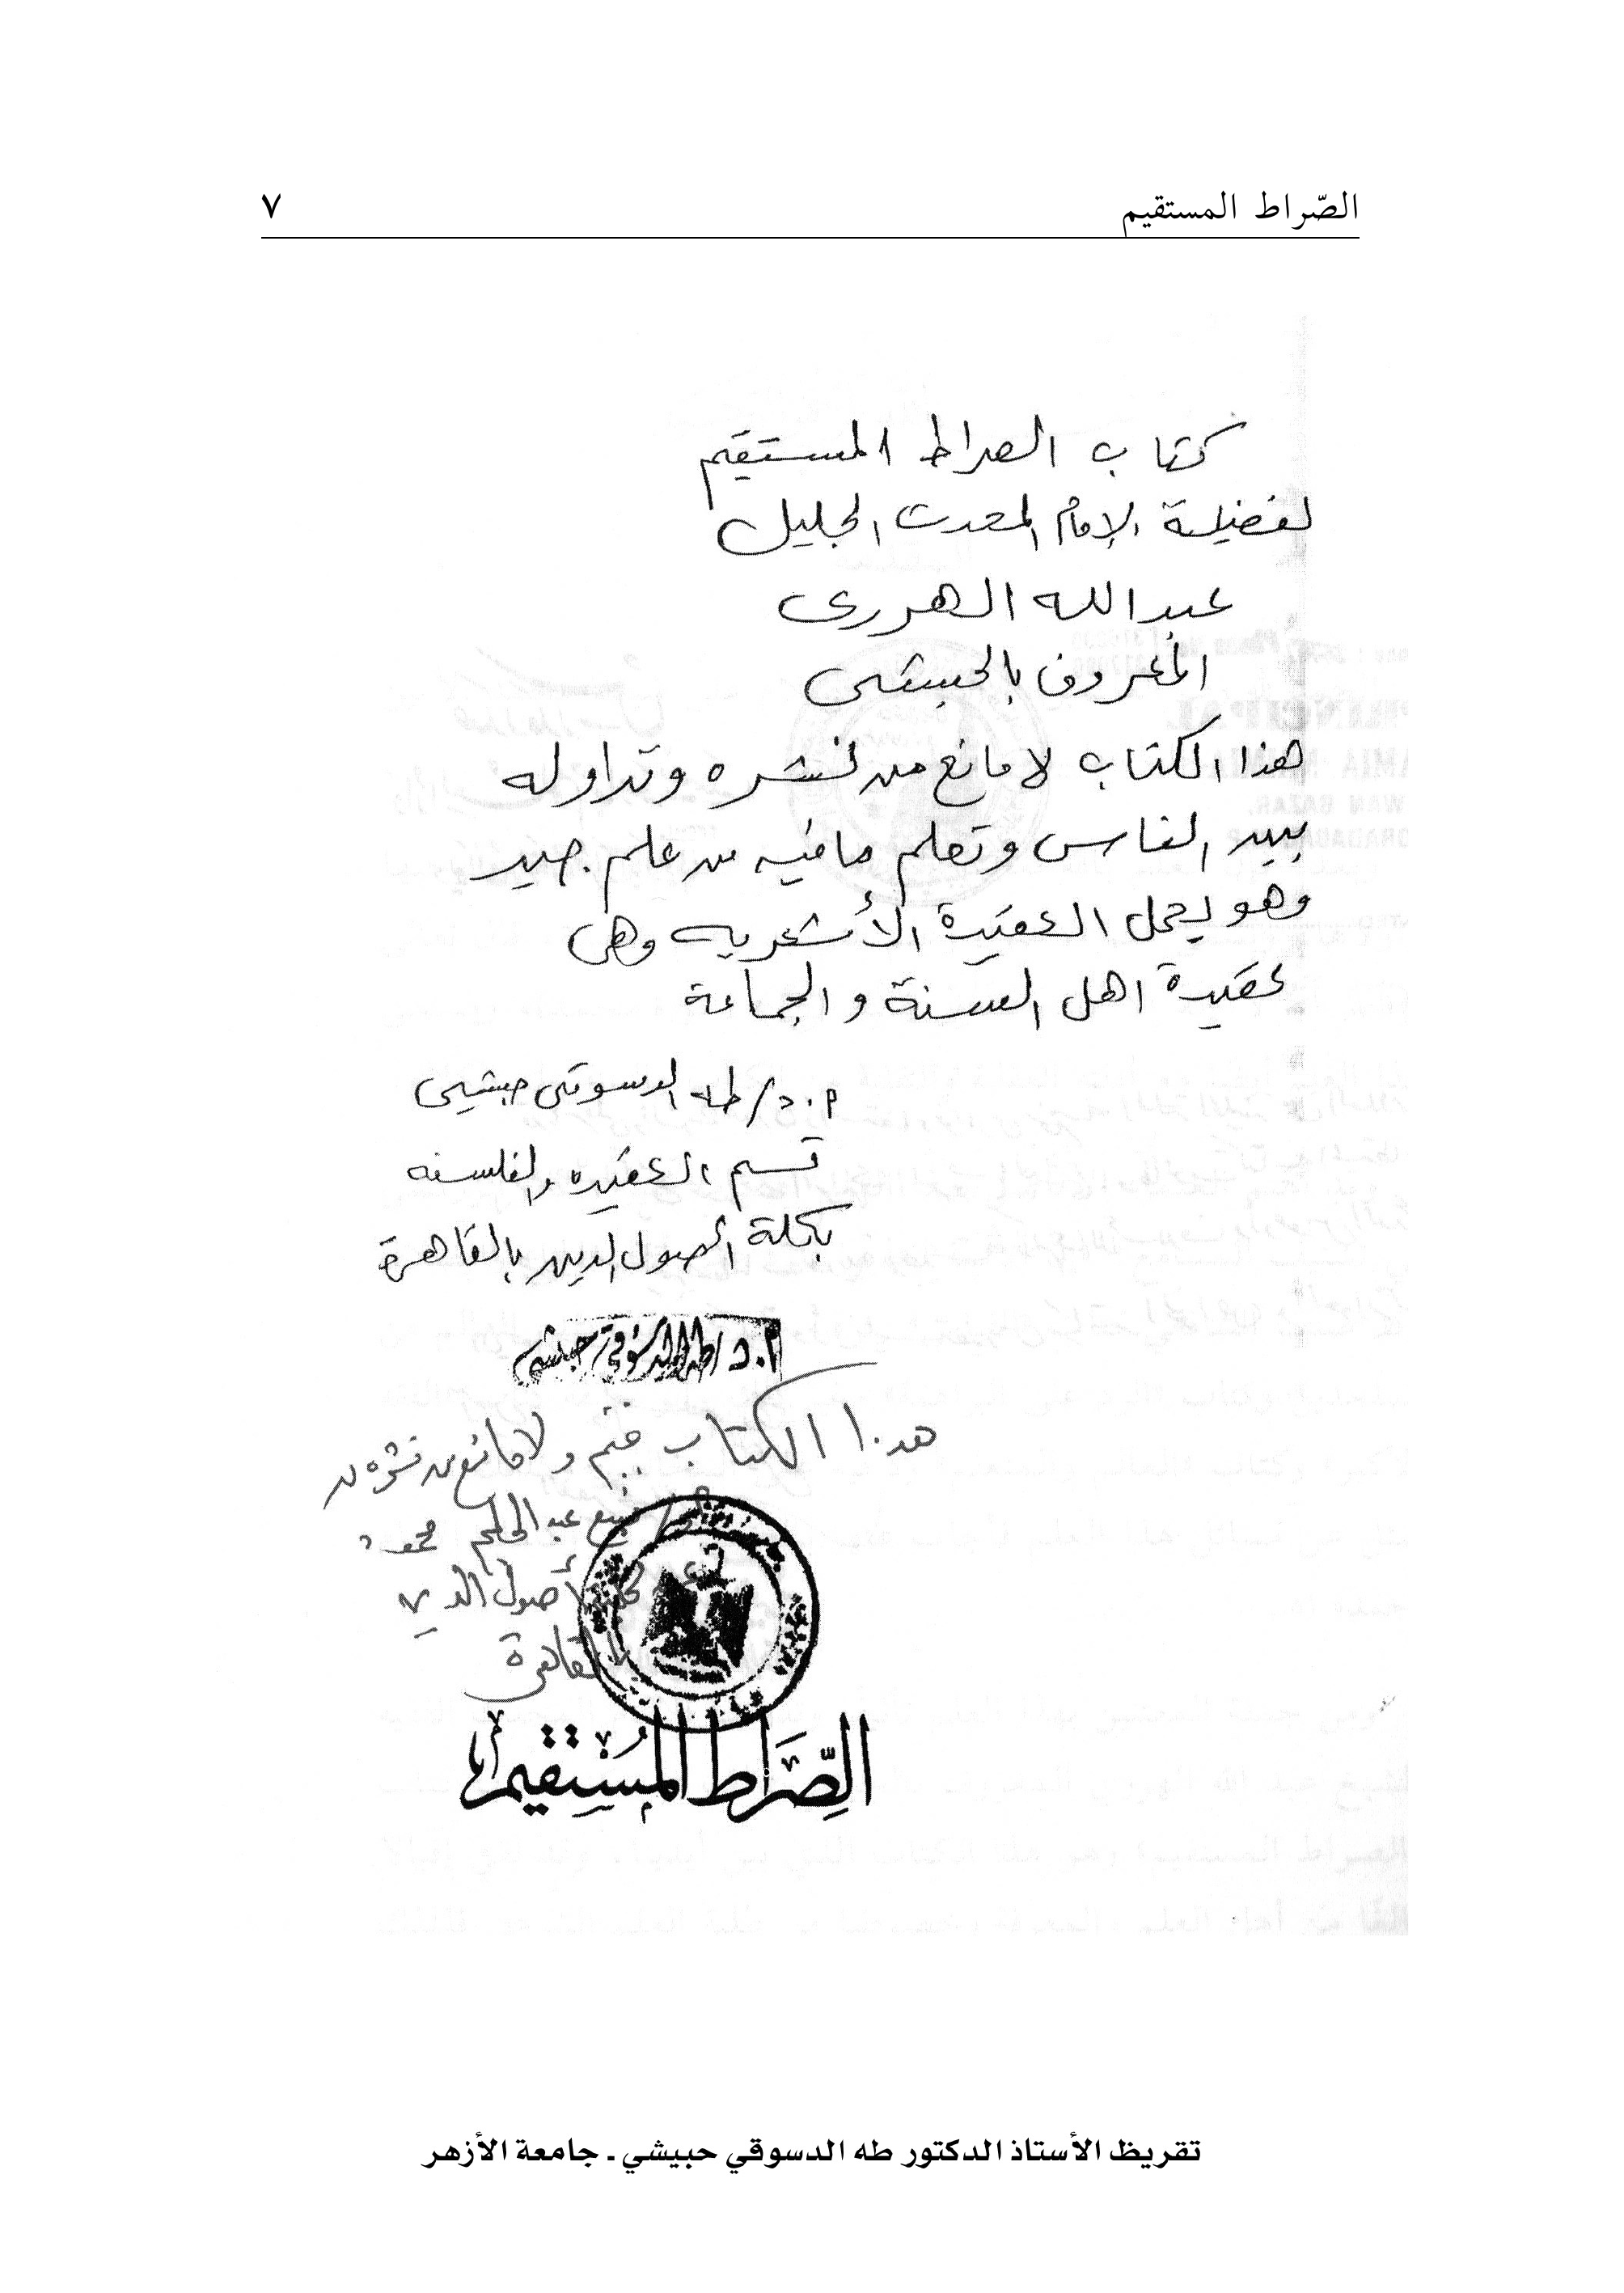 الصّراط المستقيم
٧
كتاب الصراط المستقيم
لفضيلة الإمام المحدث الجليل
عبد الله الهررى
المعروف بالحبشى
هذا الكتاب لا مانع من نشره وتداوله
بين الناس وتعلم ما فيه من علم جيد
وهو يحمل العقيدة الأشعريه وهى
عقيدة اهل السنة والجماعة
ا.د/ طه الدسوقى حبيشى
قسم العقيده والفلسفه
بكلية أصول الدين بالقاهرة
ا.د/طه الدسوقي حبيشي
هذا الكتاب قيم ولا مانع من نشره
ربيع عبد الحليم محمود
كلية أصول الدين
القاهرة
الصِّرَاط المُسْتَقِيم
تقريظ الأستاذ الدكتور طه الدسوقي حبيشي ـ جامعة الأزهر